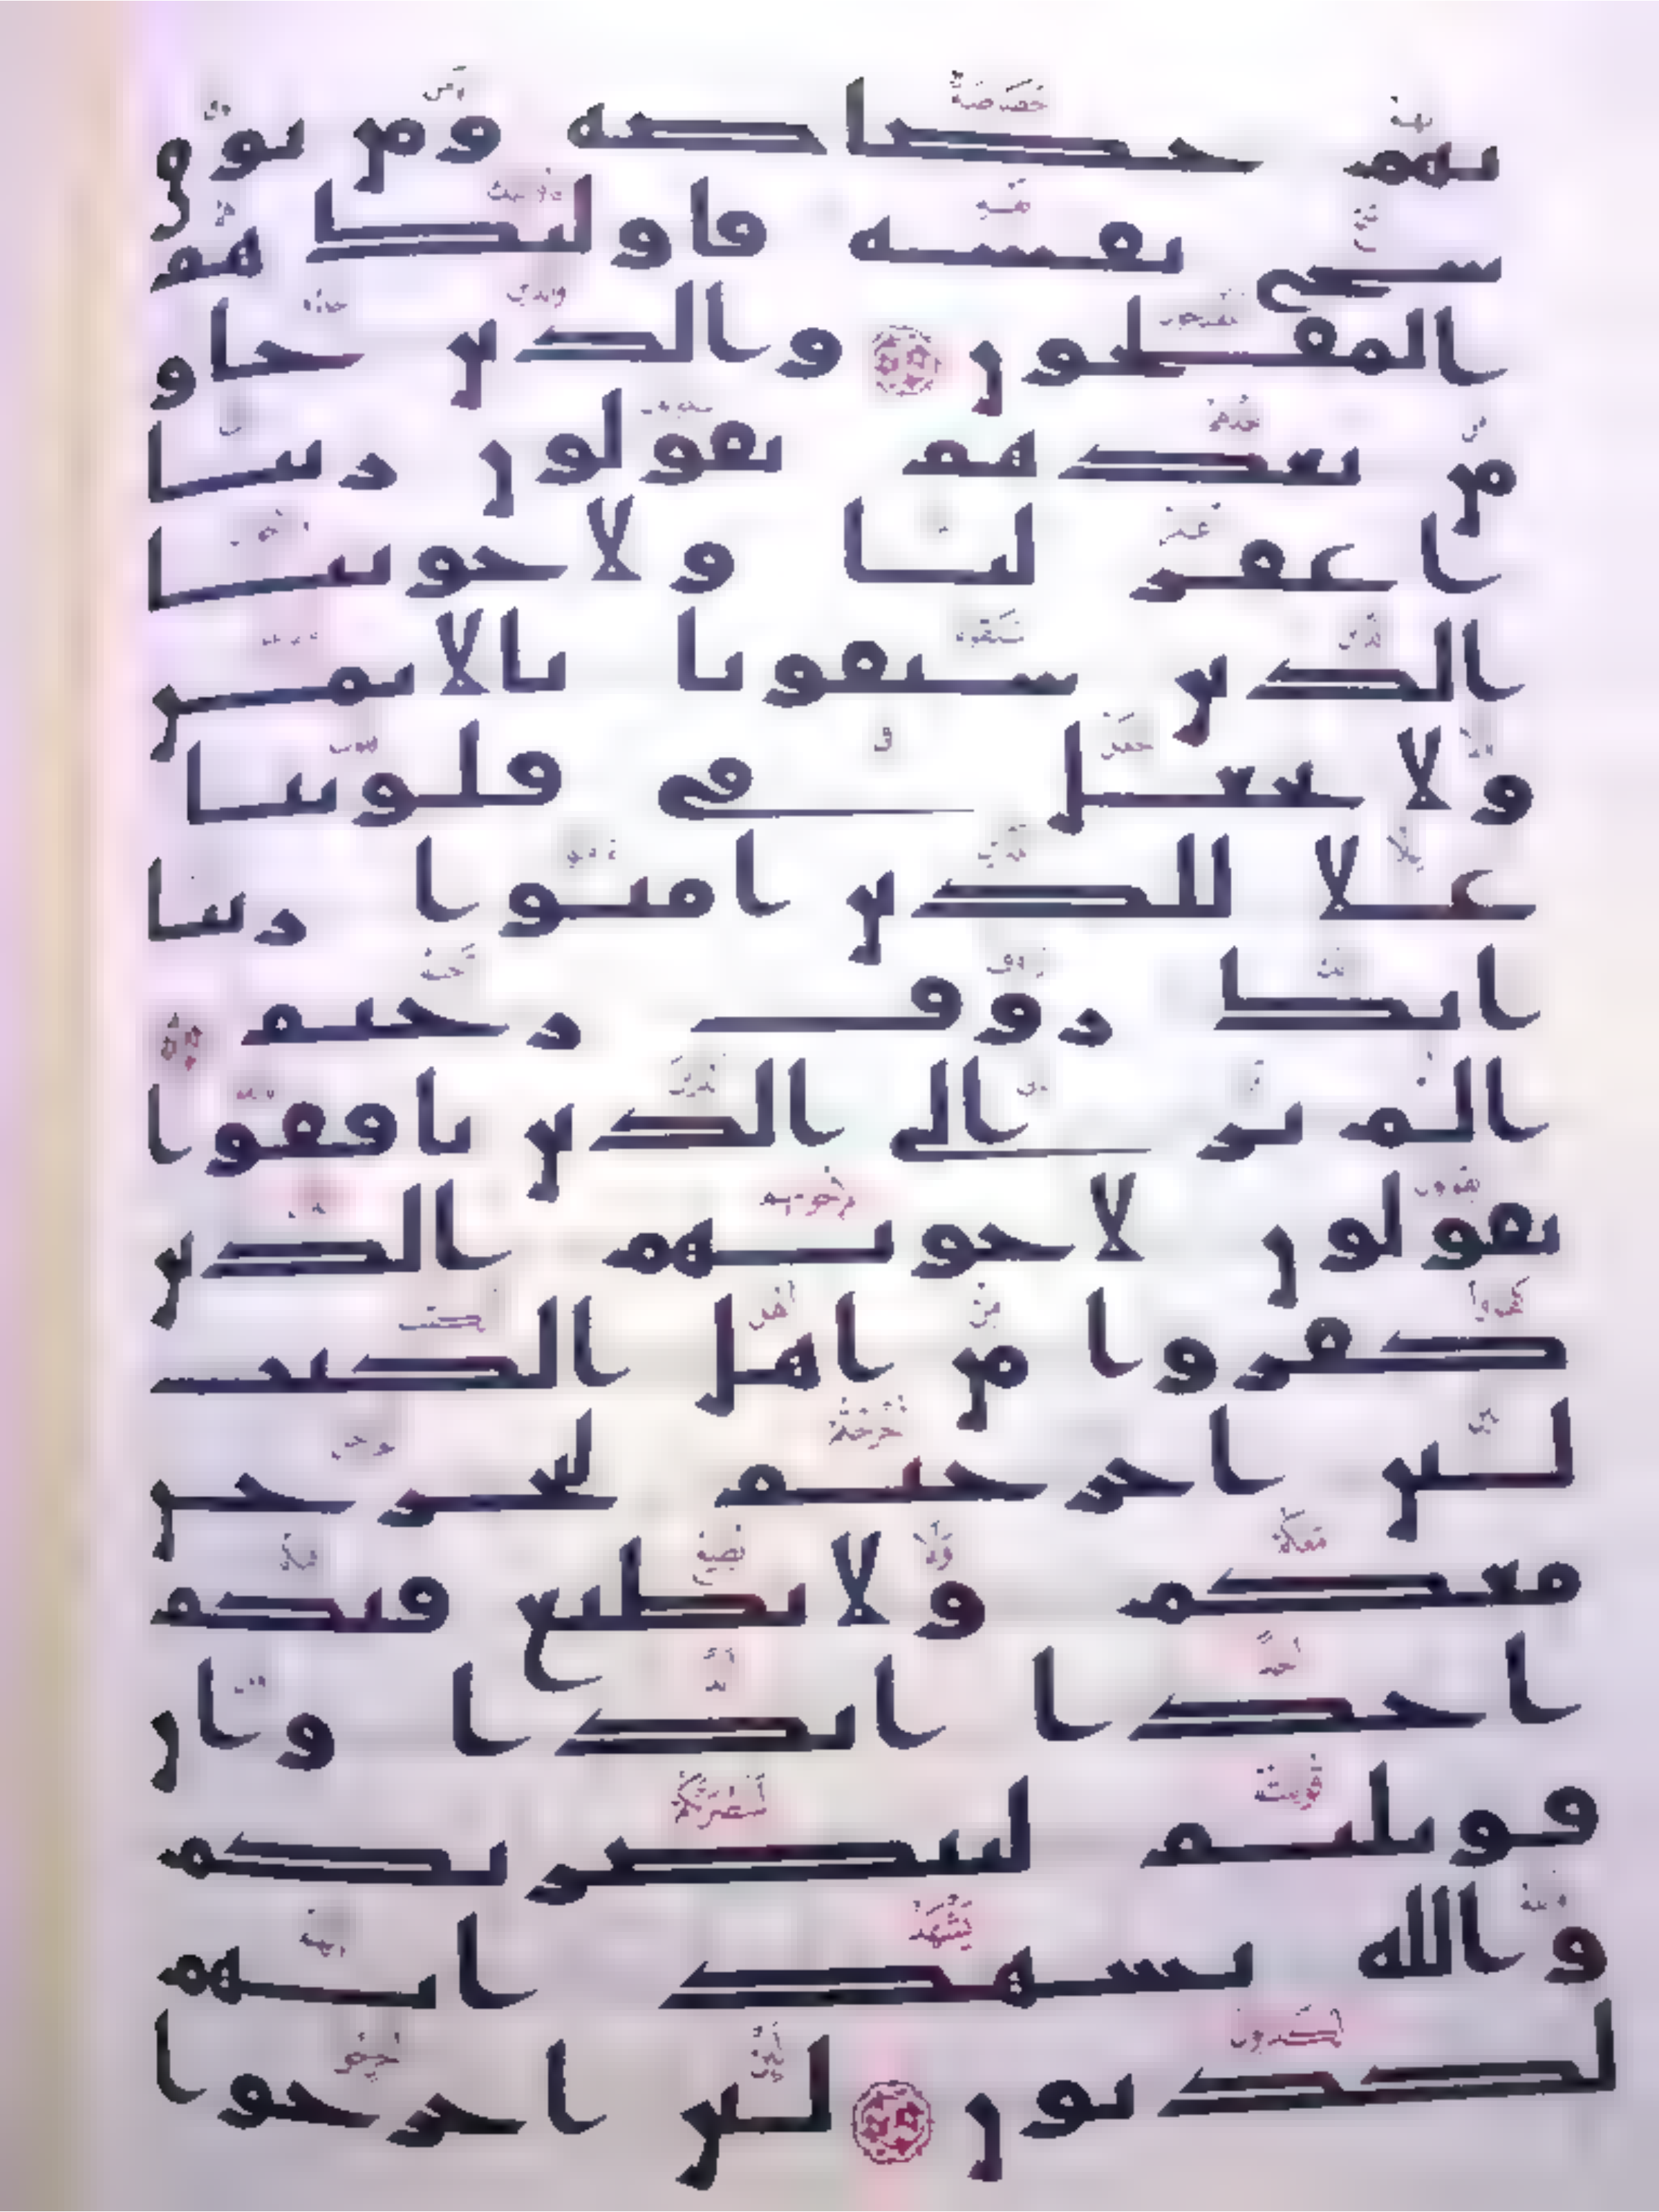 بهم خصاصة ومن يوق
شح نفسه فاولئك هم
المفلحون والذين جاو
من بعدهم يقولون ربنا
اغفر لنا ولاخوننا
الذين سبقونا بالايمن
ولا تجعل في قلوبنا
غلا للذين امنوا ربنا
انك روف رحيم
الم تر الى الذين نافقوا
يقولون لاخونهم الذين
كفروا من اهل الكتب
لئن اخرجتم لنخرجن
معكم ولا نطيع فيكم
احدا ابدا وان
قوتلتم لننصرنكم
والله يشهد انهم
لكذبون لئن اخرجوا